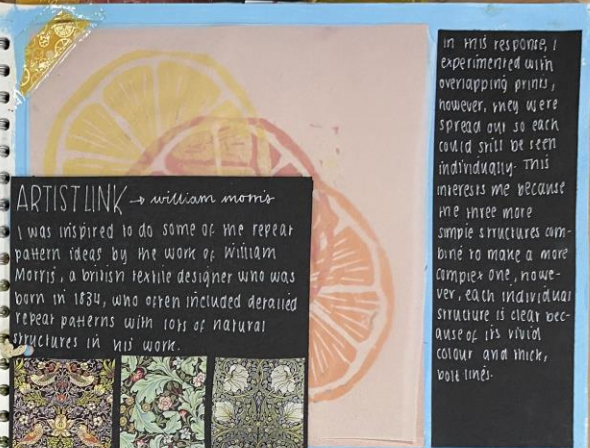 ARTIST LINK → william morris
I was inspired to do some of the repeat
pattern ideas by the work of William
Morris, a british textile designer who was
born in 1834, who often included detailed
repeat patterns with lots of natural
structures in his work.
In this response, I
experimented with
overlapping prints,
however, they were
spread out so each
could still be seen
individually. This
interests me because
the three more
simple structures com-
bine to make a more
complex one, howe-
ver, each individual
structure is clear bec-
ause of its vivid
colour and thick,
bolt lines.